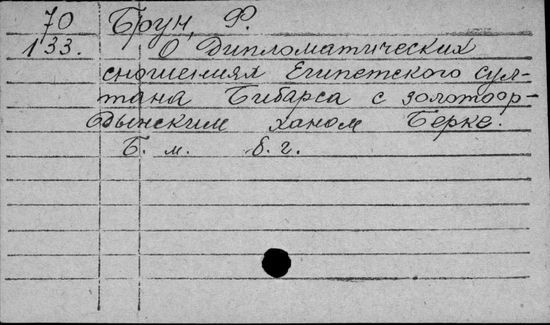 70 Брун, Ф.
133. О дипломатических
сношениях Египетского сул-
тана Бибарса с золотоор-
дынским ханом Берке.
Б. м. б. г.